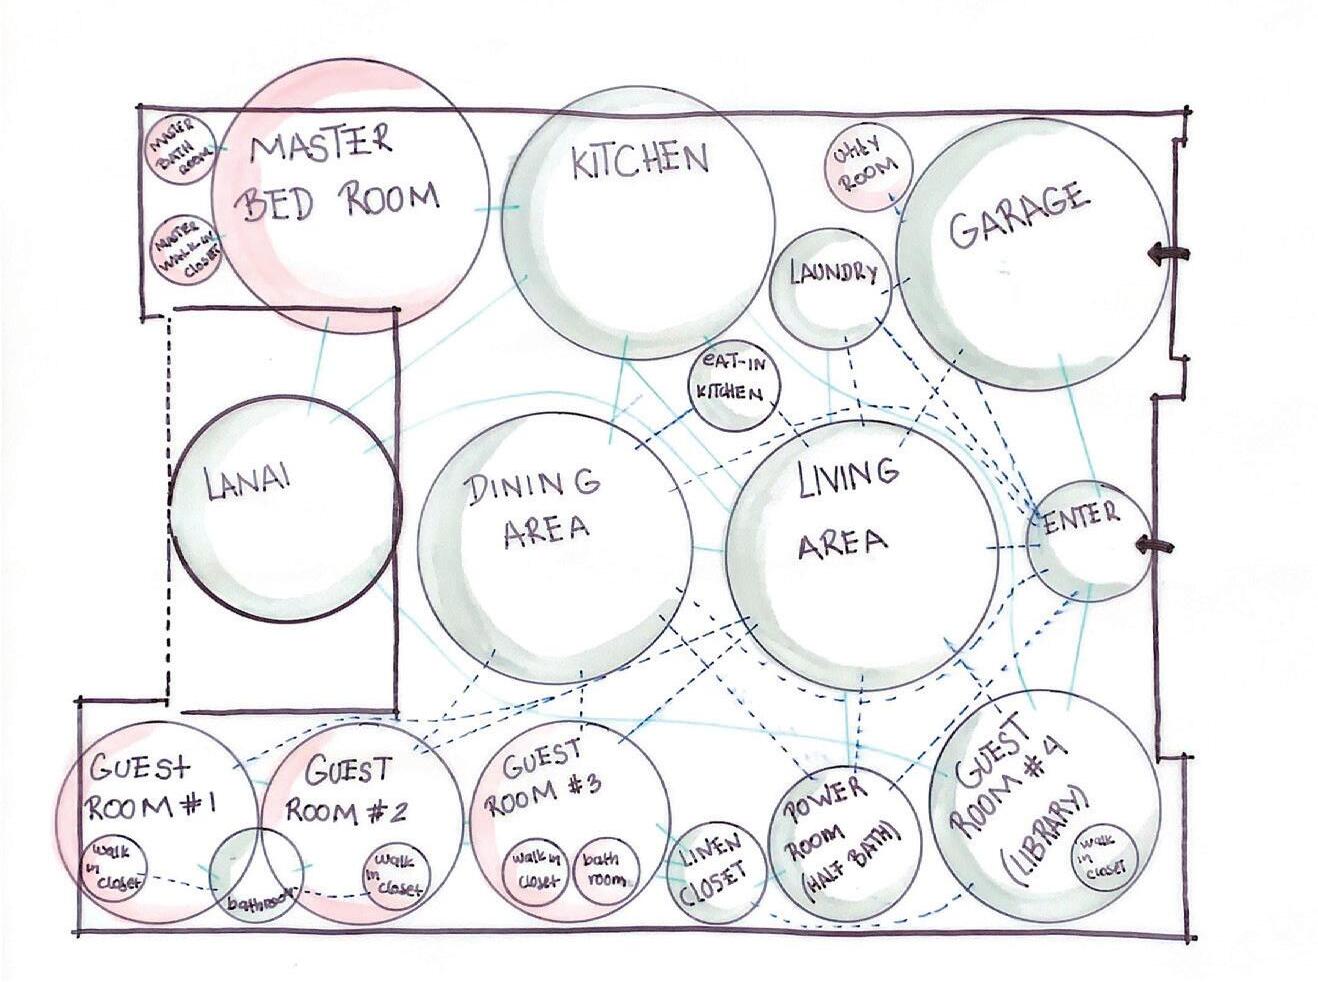 MASTER
BATH
ROOM
MASTER
BED ROOM
MASTER
WALK IN
CLOSET
KITCHEN
Utility
ROOM
GARAGE
LAUNDRY
eAT-IN
KITCHEN
LANAI
DINING
AREA
LIVING
AREA
ENTER
GUESt
ROOM #1
walk
in
closet
bathroom
GUEST
ROOM #2
walk
in
closet
GUEST
ROOM #3
walk in
closet
bath
room
LINEN
CLOSET
POWER
ROOM
(HALF BATH)
GUEST
ROOM #4
(LIBRARY)
walk
in
closet